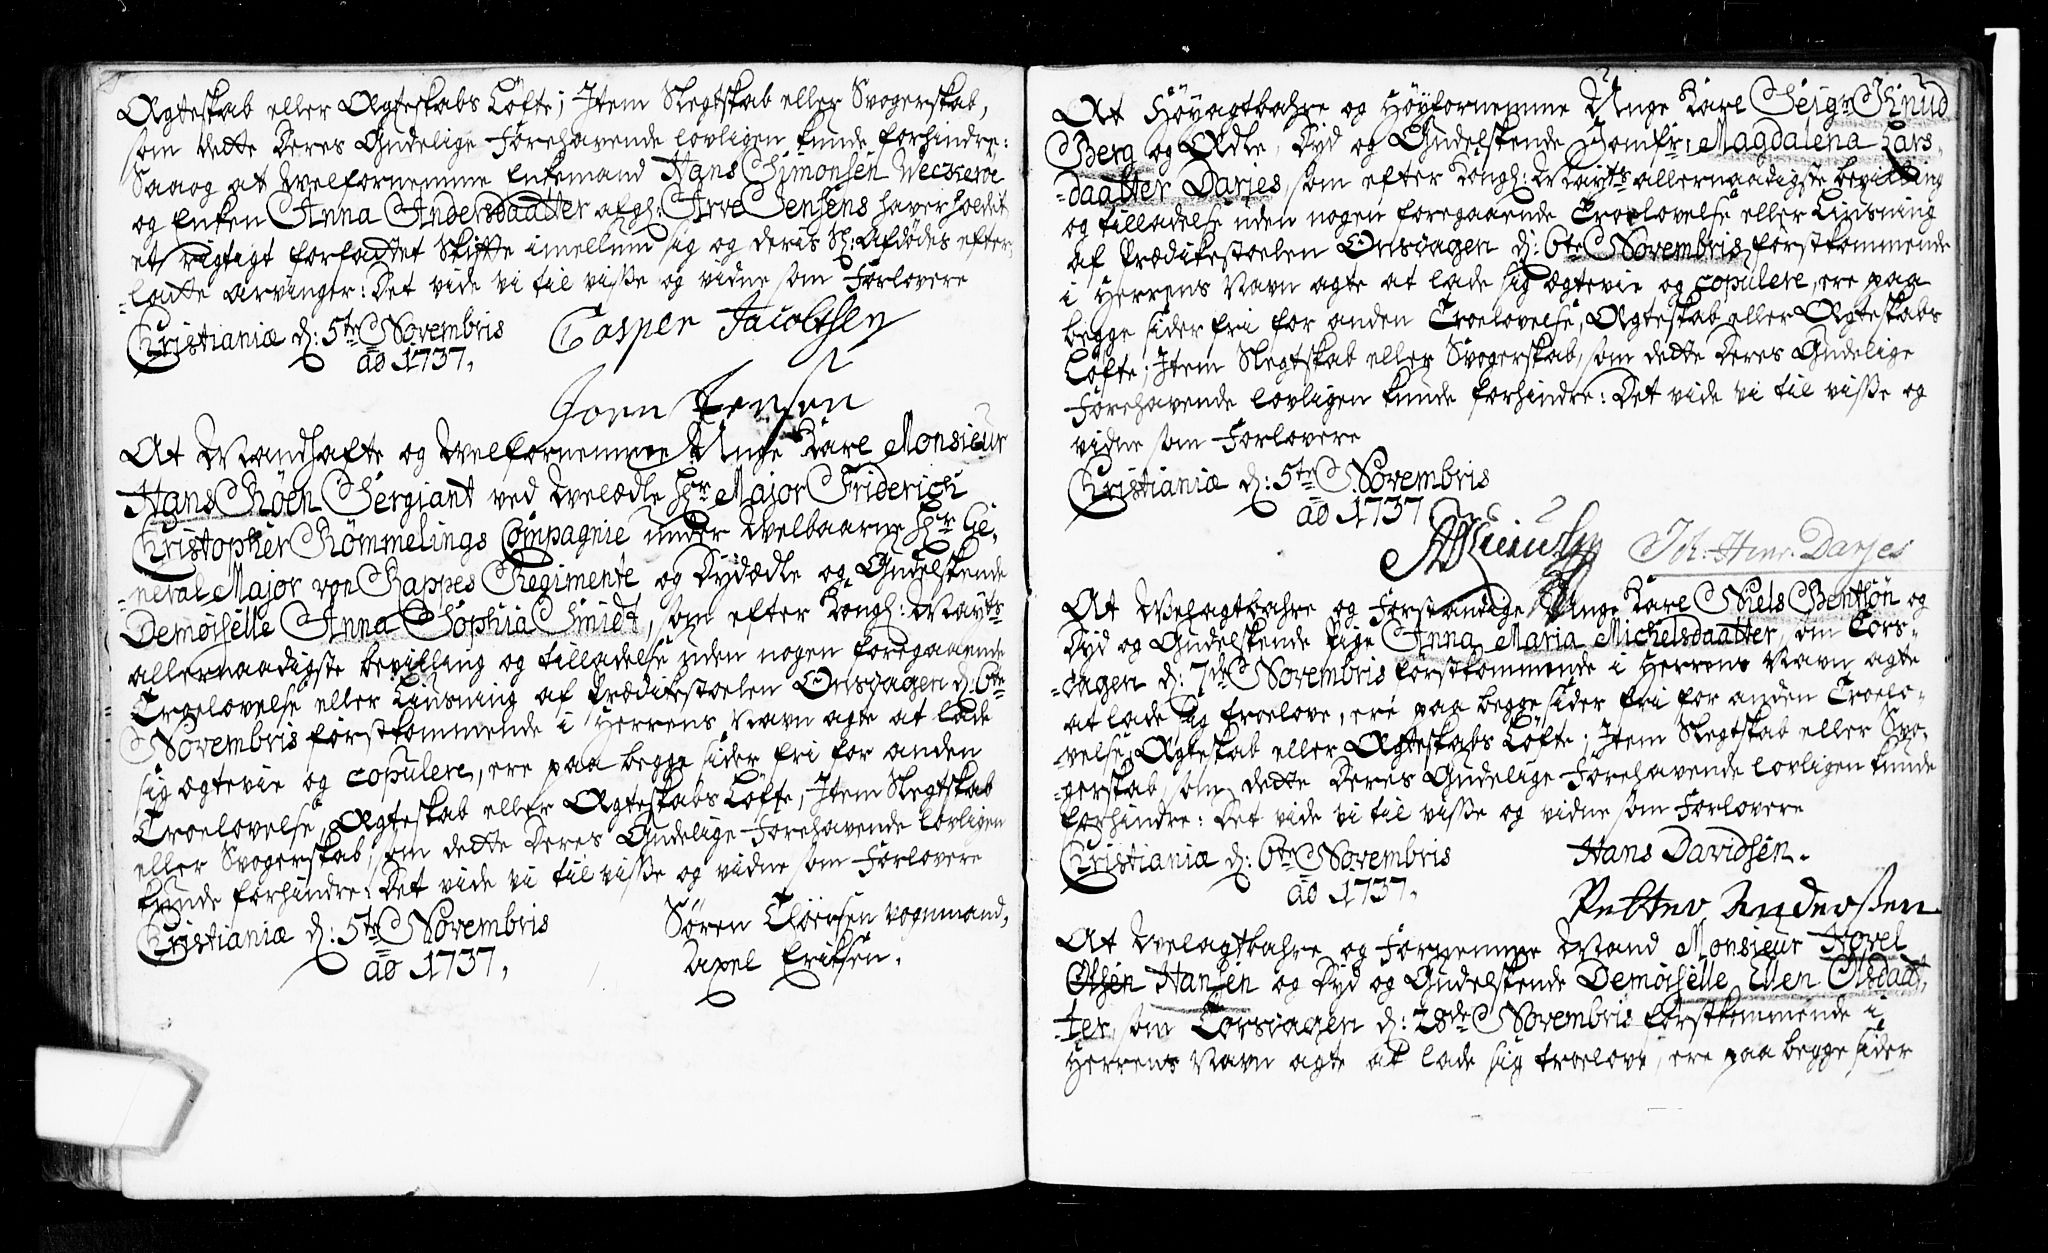 Ægteskab eller Ægteskabs Löfte; Jtem Slegtskab eller Svogerskab,
som dette Deres Gudelige Forehavende lovligen kunde forhindre:
Saa og at Welfornemme Enkemand Hans Simonsen Weckerö
og Enken Anna Andersdaatter afg: Arve Jensens haver holdet
et rigtigt forfattet Skifte imellem sig og deris Sl: Afdödes efter-
-ladte arvinger: Det vide vi til visse og vidne som Forlovere
Christianiæ d: 5te Novembris
aö 1737.
Casper Jacobsen
Jorn Jensen
At Mandhafte og Welfornemme Unge Karl Monsieur
Hans Röen Sergiant ved Welædle Hr Major Friderich
Christopher Römmelings Compagnie under Welbaarne Hr Ge-
-neral Major von Rappes Regimente og Dydædle og Gudelskende
Demoiselle Anna Sophia Smidt, som efter Kongl: Mayts
allernaadigste bevilling og tilladelse uden nogen foregaaende
Troelovelse eller Liusning af Prædikestoelen Onsdagen d: 6te
Novembris förstkommende i Herrens Navn agte at lade
sig ægtevie og copulere, ere paa begge sider fri for anden
Troelovelse, Ægteskab eller Ægteskabs Löfte, Jtem Slegtskab
eller Svogerskab, som dette Deres Gudelige Forehavende lovligen
kunde forhindre: Det vide vi til visse og vidne som Forlovere
Christianiæ d: 5te Novembris
aö 1737,
Sören Clöersen vognmand,
Axel Eriksen.
At Höyagtbahre og Höyfornemme Unge Karl Seigr Knud
Berg og Ædle, Dyd og Gudelskende Jomfr: Magdalena Lars-
-daatter Darjes, som efter Kongl: Mayts allernaadigste bevilling
og tilladelse uden nogen foregaaende Troelovelse eller Liusning
af Prædikestoelen Onsdagen d: 6te Novembris förstkommende
i Herrens Navn agte at lade sig ægtevie og copulere, ere paa
begge sider fri for anden Troelovelse, Ægteskab eller Ægteskabs
Löfte; Jtem Slegtskab eller Svogerskab, som dette Deres Gudelige
Forehavende lovligen kunde forhindre: Det vide vi til visse og
vidne som Forlovere
Christianiæ d: 5te Novembris
aö 1737
Joh: Hinr: Darjes
At Welagtbahre og Forstandige Unge Karl Niels Bentson og
Dyd og Gudelskende Pige Anna Maria Michelsdaatter, som Tors-
-dagen d: 7de Novembris förstkommende i Herrens Navn agte
at lade sig troelove, ere paa begge sider fri for anden Troelo-
-velse, Ægteskab eller Ægteskabs Löfte; Jtem Slegtskab eller Svo-
-gerskab, som dette Deres Gudelige Forehavende lovligen kunde
forhindre: Det vide vi til visse og vidne som Forlovere
Christianiæ d: 6te Novembris
aö 1737.
Hans Davidsen.
Petter Andersen
At Welagtbahre og Fornemme Mand Monsieur Hovel
Olsen Hansen og Dyd og Gudelskende Demoiselle Ellen Olsdaat-
-ter, som Torsdagen d: 28de Novembris förstkommende i
Herrens Navn agte at lade sig troelove, ere paa begge sider